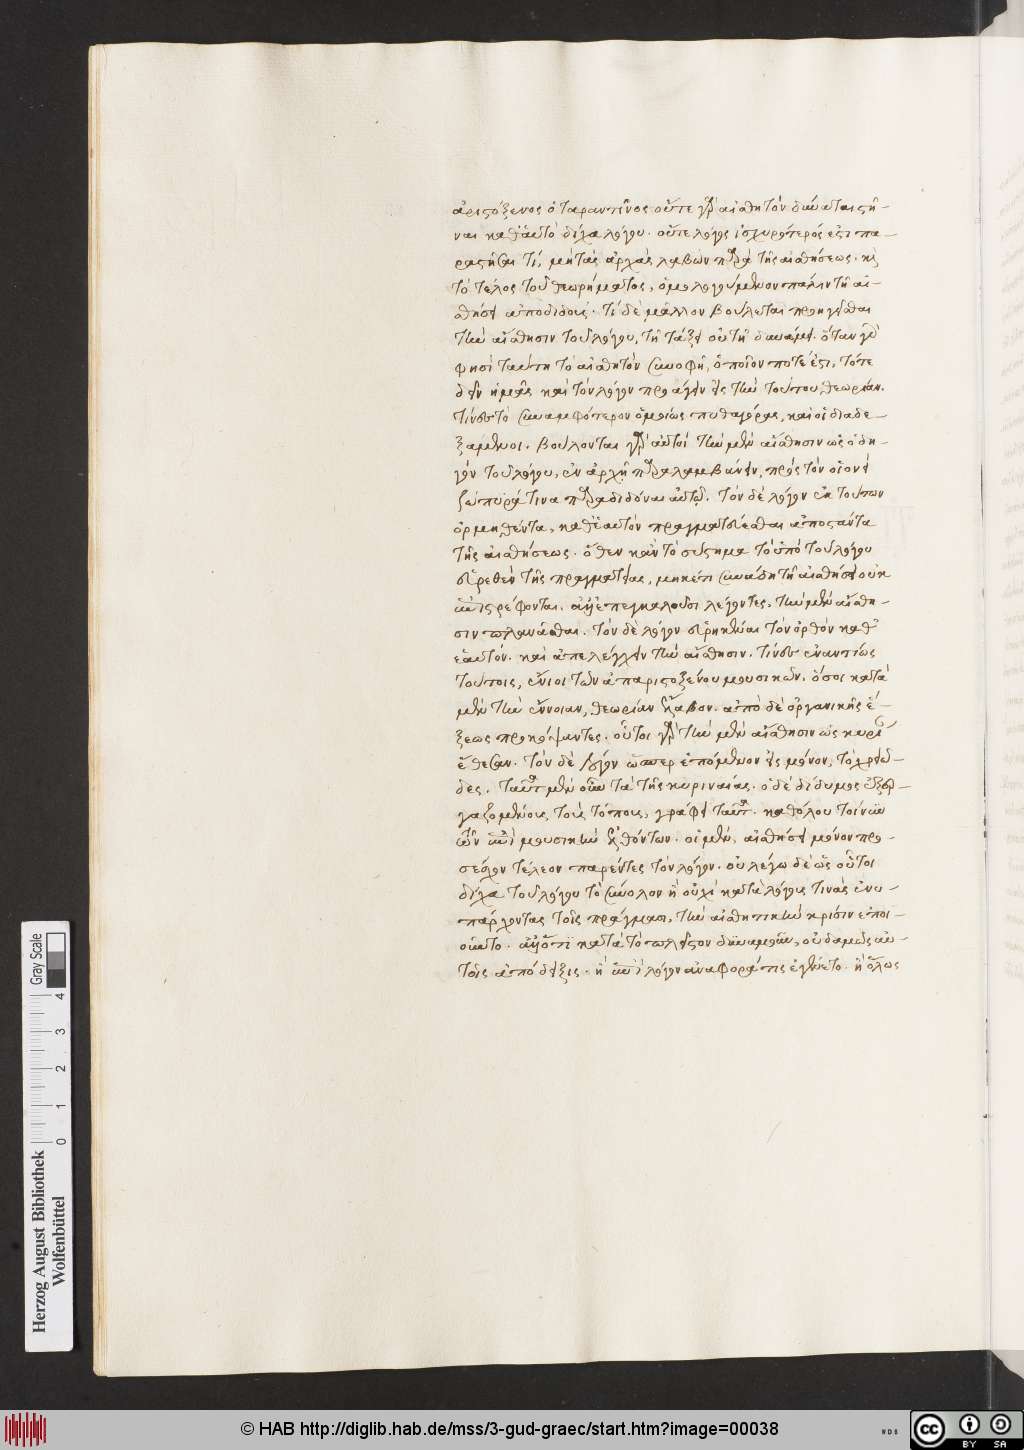 ἀριστόξενος ὁ ταραντῖνος οὔτε γὰρ αἰσθητὸν δύναται στῆ-
ναι καθ' ἑαυτὸ δίχα λόγου. οὔτε λόγος ἰσχυρότερός ἐστι πα-
ραστῆσαι τί, μὴ τὰς ἀρχὰς λαβὼν παρὰ τῆς αἰσθήσεως. καὶ
τὸ τέλος τοῦ θεωρήματος, ὁμολογούμενον πάλιν τῇ αἰ-
σθήσει ἀποδιδούς. τί δὲ μᾶλλον βούλεται προηγεῖσθαι
τὴν αἴσθησιν τοῦ λόγου, τῇ τάξει οὐ τῇ δυνάμει. ὅταν γὰρ
φησὶ ταύτῃ τὸ αἰσθητὸν συνοφῇ, ὁποῖον ποτέ ἐστι, τότε
δεῖν ἡμᾶς καὶ τὸν λόγον προάγειν εἰς τὴν τούτου θεωρίαν.
τίνες τὸ συναμφότερον ὁμοίως πυθαγόρας, καὶ οἱ διαδε-
ξάμενοι. βούλονται γὰρ αὐτοὶ τὴν μὲν αἴσθησιν ὡς ὁδη-
γὸν τοῦ λόγου, ἐν ἀρχῇ παραλαμβάνειν, πρὸς τὸν οἱονεὶ
ζώπυρά τινα παραδιδόναι αὐτῷ. τὸν δὲ λόγον ἐκ τούτων
ὁρμηθέντα, καθ' ἑαυτὸν πραγματεύεσθαι ἀποστάντα
τῆς αἰσθήσεως. ὅθεν κἂν τὸ σύστημα τὸ ὑπὸ τοῦ λόγου
εὑρεθὲν τῆς πραγματείας, μηκέτι συνάδῃ τῇ αἰσθήσει οὐκ
ἐπιστρέφονται. ἀλλ' ἐπεγκαλοῦσι λέγοντες, τὴν μὲν αἴσθη-
σιν πλανᾶσθαι. τὸν δὲ λόγον εὑρηκέναι τὸν ὀρθὸν καθ'
ἑαυτόν. καὶ ἀπελέγχειν τὴν αἴσθησιν. τίνες ἐναντίως
τούτοις, ἔνιοι τῶν ἀπ' ἀριστοξένου μουσικῶν. ὅσοι κατὰ
μὲν τὴν ἔννοιαν, θεωρίαν ἔλαβον. ἀπὸ δὲ ὀργανικῆς ἕ-
ξεως προκόψαντες. οὗτοι γὰρ τὴν μὲν αἴσθησιν ὡς κυρίαν
ἔθεσαν. τὸν δὲ λόγον ὥσπερ ἑπόμενον εἰς μόνον, τὸ χρειῶ-
δες. ταῦτα μὲν οὖν τὰ τῆς κυριναίας. ὁ δὲ δίδυμος ἐξερ-
γαζομένους τοὺς τόπους, γράφει ταῦτα. καθόλου τοίνυν
τῶν ἐπὶ μουσικὴν ἐλθόντων. οἱ μὲν, αἰσθήσει μόνον προ-
σέσχον τέλεον παρέντες τὸν λόγον. οὐ λέγω δὲ ὡς οὗτοι
δίχα τοῦ λόγου τὸ σύνολον ἢ οὐχὶ κατὰ λόγους τινὰς ἐνυ-
πάρχοντας τοῖς πράγμασι, τὴν αἰσθητικὴν κρίσιν ἐποι-
οῦντο. ἀλλ' ὅτι κατὰ τὸ πλεῖστον δυναμένων, οὐδαμῶς αὐ-
τοῖς ἀπόδειξις. ἢ ἐπὶ λόγον ἀναφορά τις ἐγένετο. ἢ ὅλως
Herzog August Bibliothek
Wolfenbüttel
0 1 2 3 4
Gray Scale
© HAB http://diglib.hab.de/mss/3-gud-graec/start.htm?image=00038
cc BY SA